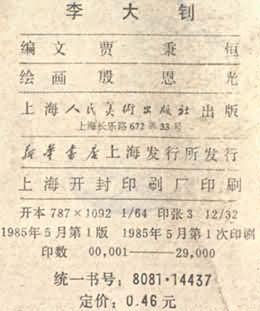 李大钊
编文 贾秉恒
绘画 殷恩光
上海人民美术出版社出版
上海长乐路672弄33号
新华书店上海发行所发行
上海开封印刷厂印刷
开本787×1092 1/64 印张3 12/32
1985年5月第1版 1985年5月第1次印刷
印数 00,001——29,000
统一书号：8081·14437
定价：0.46元